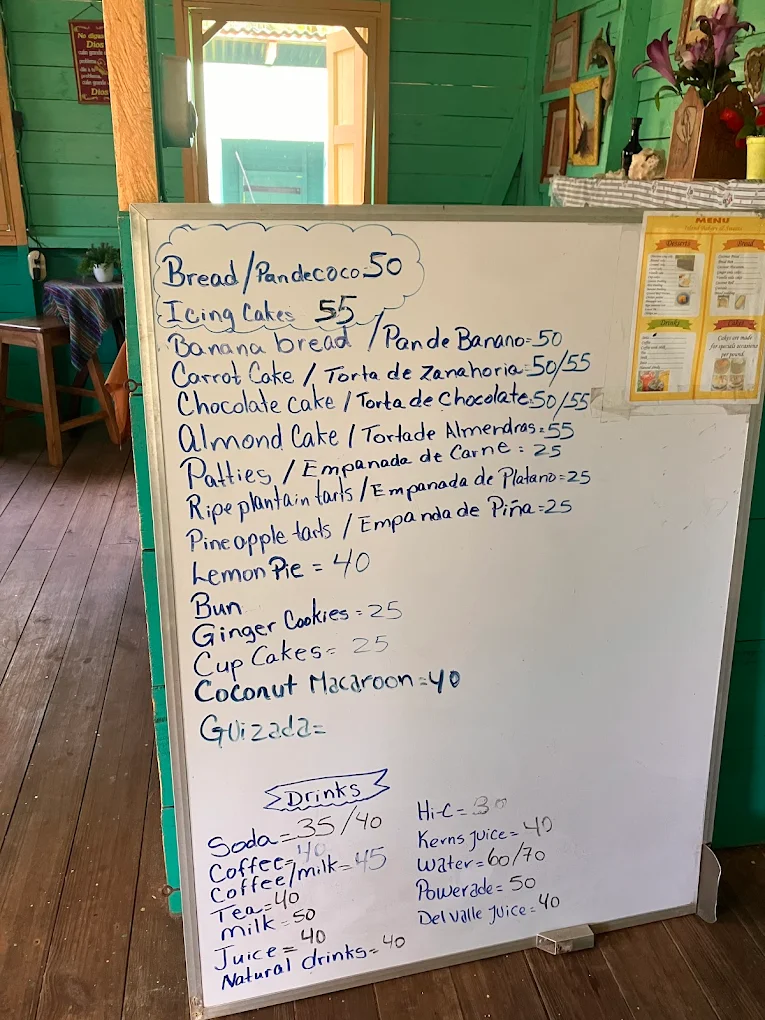 No digas
Dios
Dios
Bread/Pan de coco 50
Icing Cakes 55
Banana bread /Pan de Banano=50
Carrot Cake / Torta de Zanahoria=50/55
Chocolate Cake / Torta de Chocolate=50/55
Almond Cake / Torta de Almendras=55
Patties / Empanada de Carne = 25
Ripe plantain tarts / Empanada de Platano=25
Pineapple tarts / Empanda de Piña=25
Lemon Pie = 40
Bun
Ginger Cookies = 25
Cup Cakes= 25
Coconut Macaroon=40
Guizada=
Drinks
Soda=35/40
Coffee=40
Coffee/milk=45
Tea=40
milk=50
Juice=40
Natural drinks=40
Hi-C=30
Kerns Juice=40
Water=60/70
Powerade=50
Del valle Juice=40
MENU
Desserts
Bread
Drinks
Cakes
Cakes are made
for specials occasions
per pound